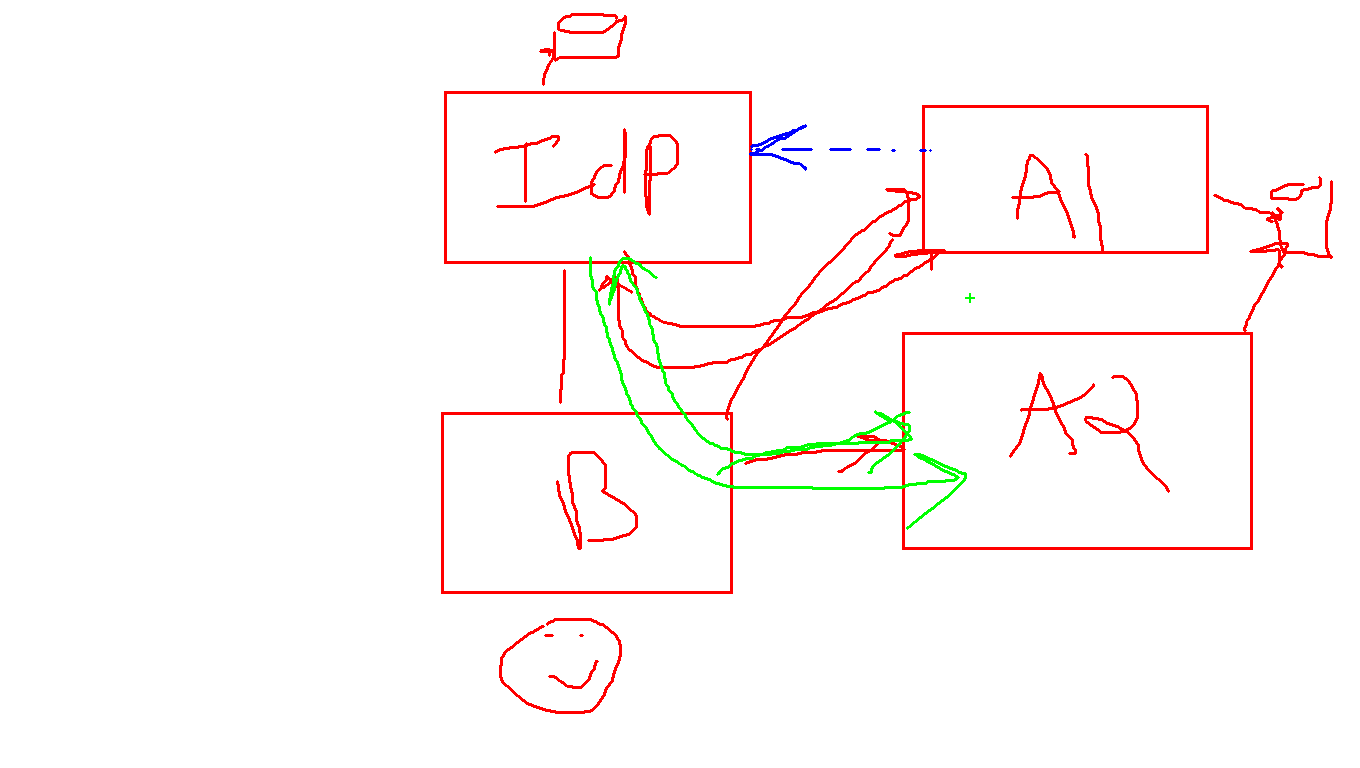 IdP
A1
A2
B